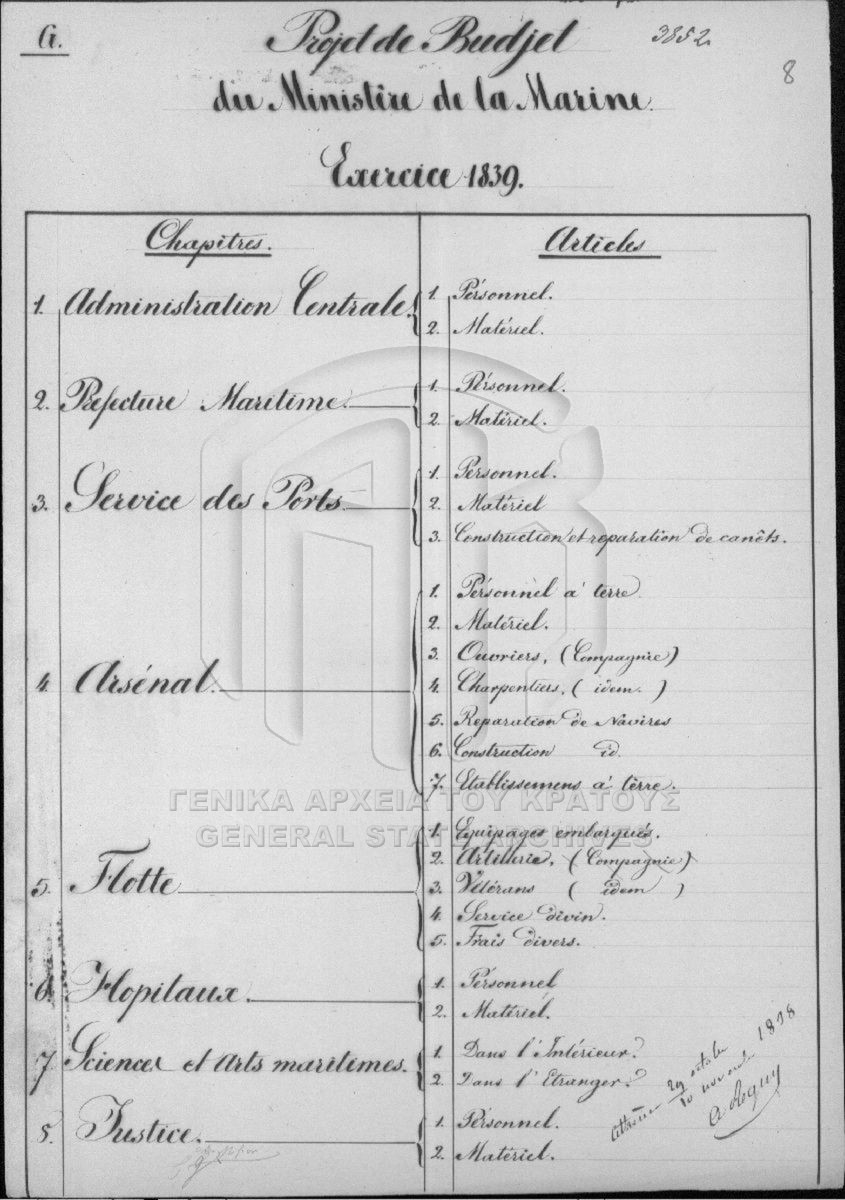 G. Projet de Budjet 3852
8
du Ministère de la Marine.
Exercice 1839.
Chapitres. Articles
1. Administration Centrale. 1. Pérsonnel.
2. Matériel.
2. Préfecture Maritime. 1. Pérsonnel.
2. Matériel.
3. Service des Ports 1. Personnel.
2. Matériel
3. Construction et reparation de canôts.
4. Arsénal. 1. Pérsonnel à terre
2. Matériel.
3. Ouvriers, (Compagnie)
4. Charpentiers, (idem.)
5. Reparation de Navires
6. Construction id.
7. Etablissemens à tèrre.
ΓΕΝΙΚΑ ΑΡΧΕΙΑ ΤΟΥ ΚΡΑΤΟΥΣ
GENERAL STATE ARCHIVES
5. Flotte 1. Equipages embarqués.
2. Artillerie, (Compagnie)
3. Vétérans (idem)
4. Service divin.
5. Frais divers.
6. Hopitaux. 1. Pérsonnel
2. Matériel.
7. Sciences et Arts maritimes. 1. Dans l'Intérieur.
2. Dans l'Etranger.
8. Justice. 1. Pérsonnel.
2. Matériel.
29 octobre
10 novembre 1838